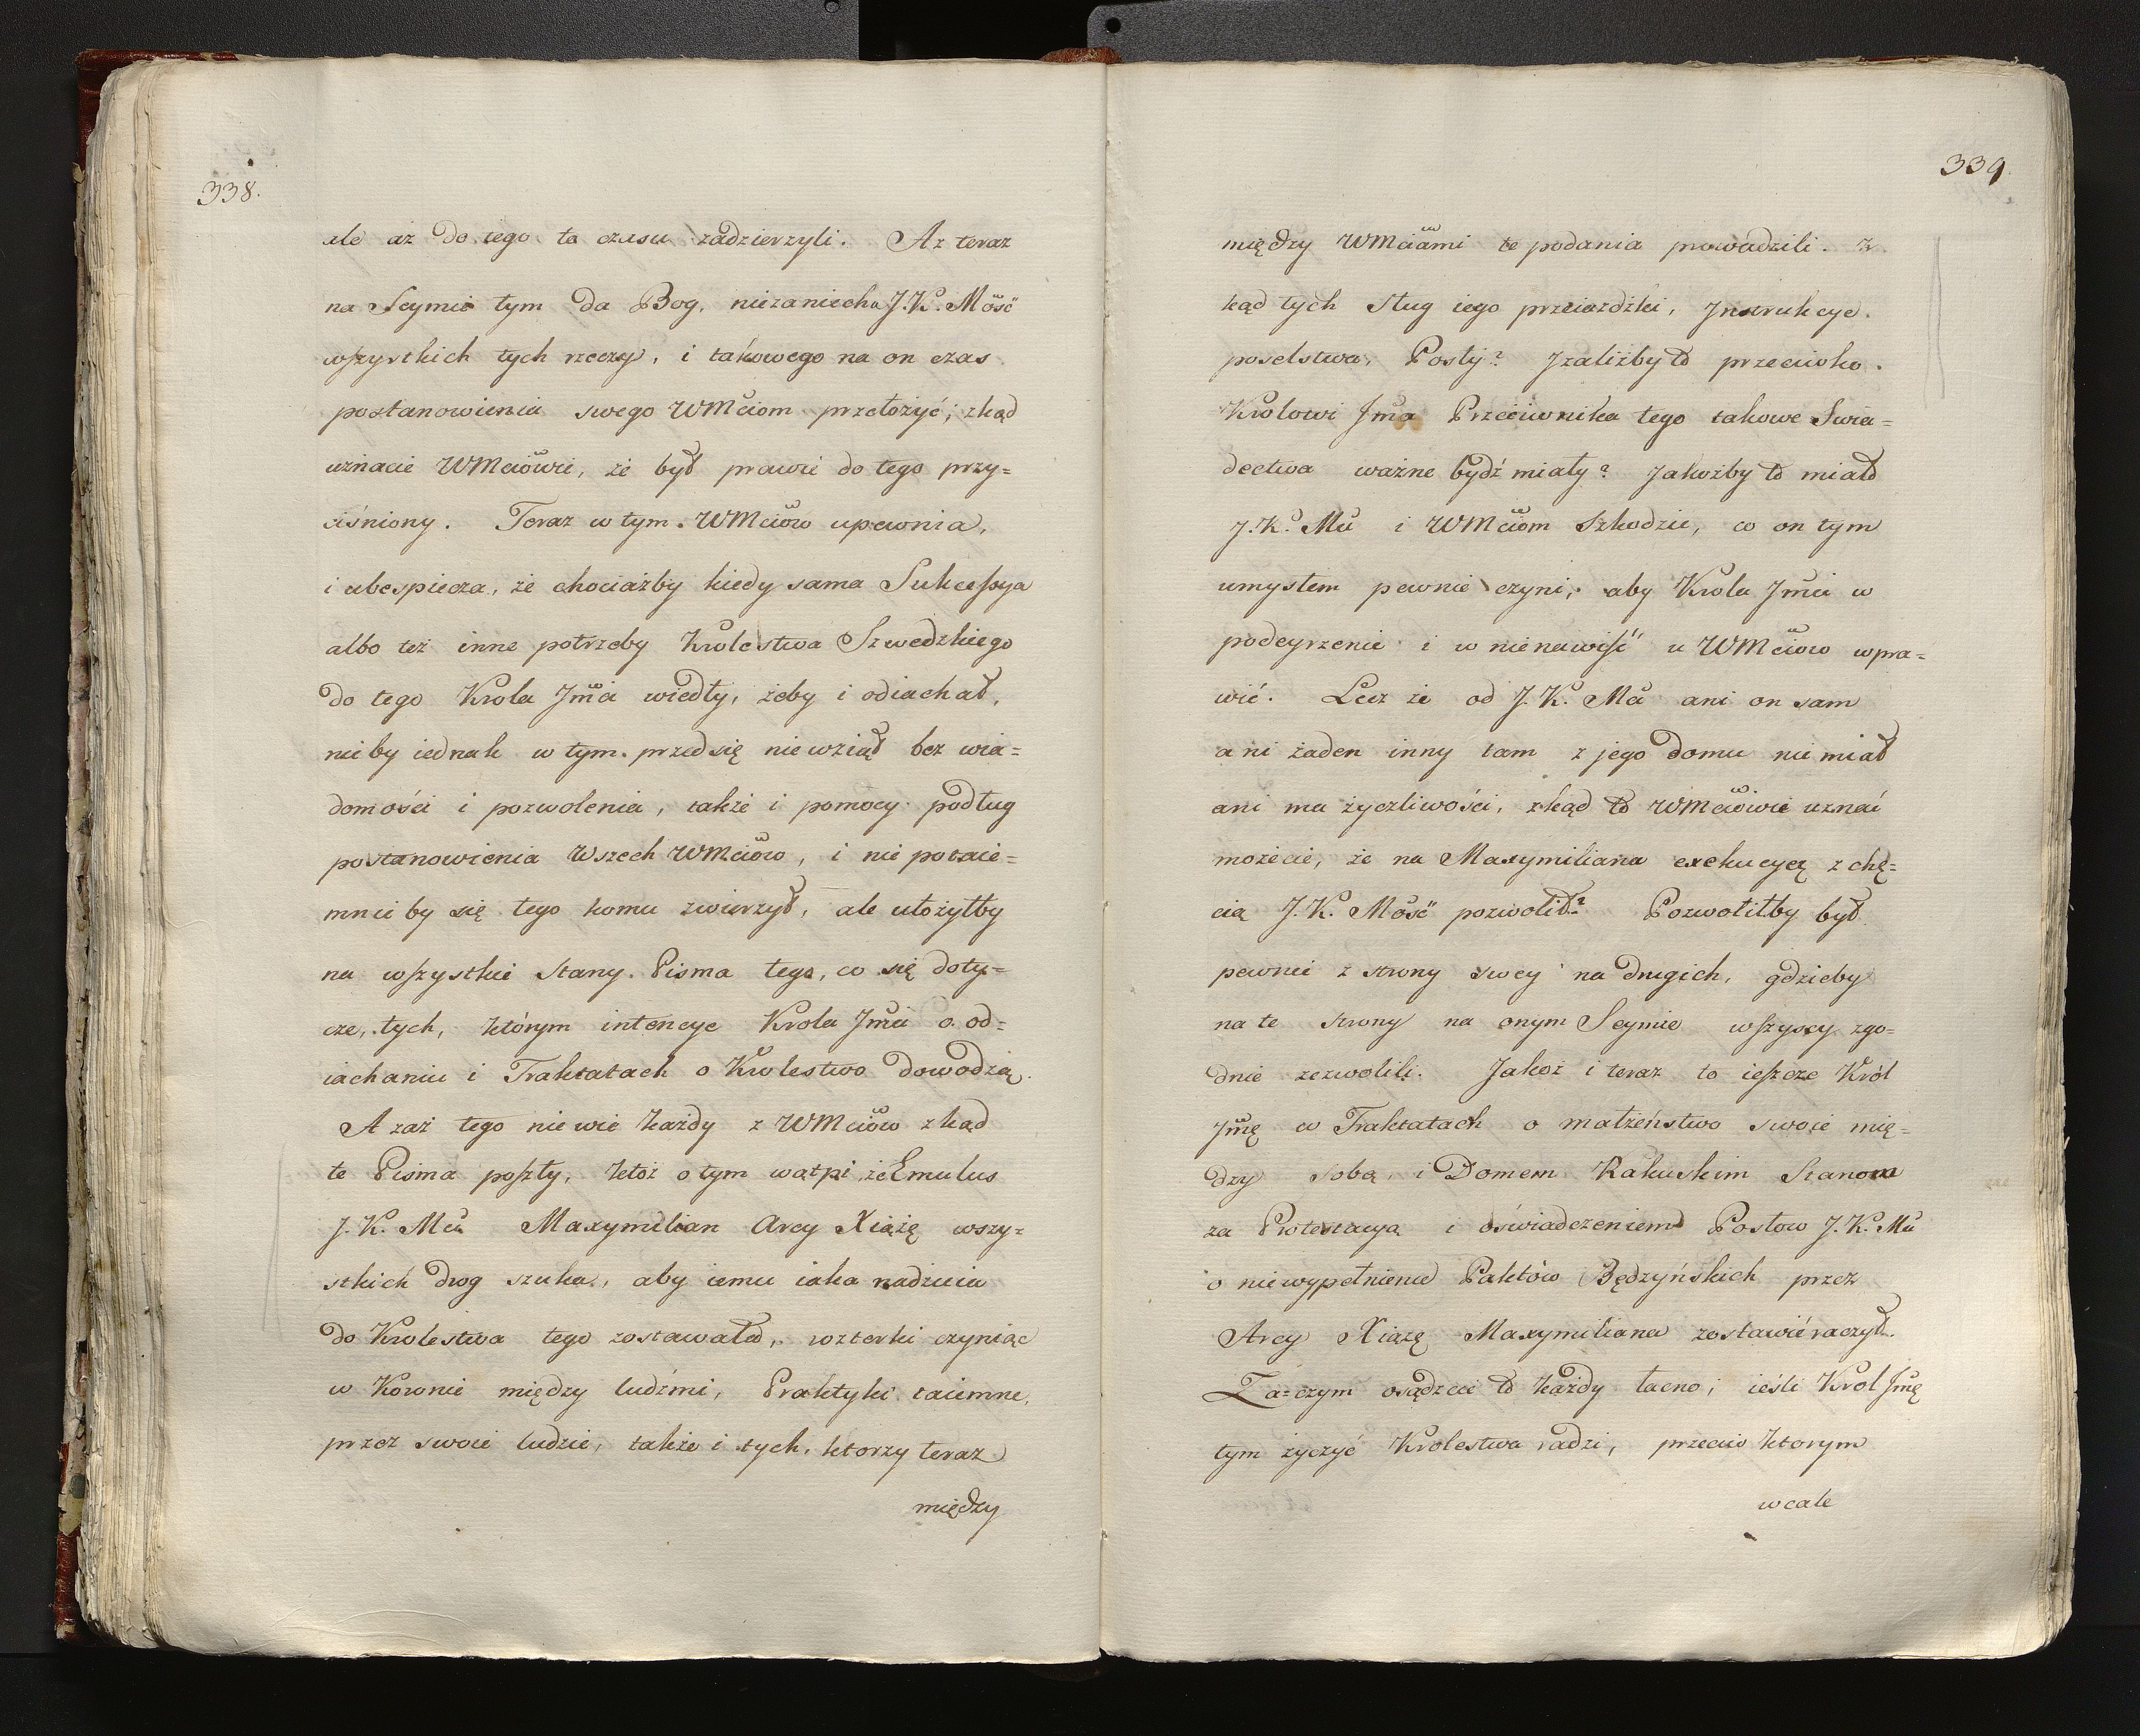 338.
ale aż do tego to czasu zadzierzyli. Az teraz
na Seymie tym da Bog, niezaniecha J.K. Mość
wszystkich tych rzeczy, i takowego na on czas
postanowienia swego WMciom przełożyć; zkąd
uznacie WMciowie, że był prawie do tego przy=
ciśniony. Teraz w tym WMciow upewnia,
i ubespiecza, że chociażby kiedy sama Sukcessya
albo też inne potrzeby Krolestwa Szwedzkiego
do tego Krola Jmci wiedły, żeby i odiachał,
nie by iednak w tym przedsię nie wziął bez wia=
domości i pozwolenia, także i pomocy podług
postanowienia Wszech WMciow, i nie potaie=
mnie by się tego komu zwierzył, ale ułożyłby
na wszystkie Stany. Pisma tego, co się doty=
cze, tych, którym intencye Krola Jmci o od=
iachaniu i Traktatach o Krolestwo dowodzią.
A zaż tego nie wie każdy z WMciow zkąd
te Pisma poszły, któż o tym wątpi że Emulus
J.K. Mci Maxymilian Arcy Xiążę wszy=
stkich drog szuka, aby iemu iaka nadzieia
do Krolestwa tego zostawała, wzterki czyniąc
w Koronie między ludźmi, Praktyki taiemne,
przez swoie ludzie, także i tych, ktorzy teraz
między
339
między WMciami te podania prowadzili. z
kąd tych sług iego przeiażdżki, Jnstrukcye.
poselstwa, Posły? Jzaliżby to przeciwko
Krolowi Jmci Przeciwnika tego takowe Swia=
dectwa ważne bydź miały? Jakożby to miało
J.K. Mci i WMciom szkodzić, co on tym
umysłem pewnie czyni, aby Krola Jmci w
podeyrzenie i w nienawiść u WMciow wpra=
wić. Lecz że od J.K. Mci ani on sam
ani żaden inny tam z jego domu nie miał
ani ma życzliwości, zkąd to WMciowie uznać
możecie, że na Maxymiliana exekucyą z chę=
cią J.K. Mość pozwolił? Pozwoliłby był
pewnie z strony swey na drugich, gdzieby
na te strony na onym Seymie wszyscy zgo=
dnie zezwolili. Jakoż i teraz to ieszcze Król
Jmę w Traktatach o małżeństwo swoie mię=
dzy sobą, i Domem Rakuskim Stanom
za Protestacyą i oświadczeniem Posłow J.K. Mci
o niewypełnieniu Paktów Będzyńskich przez
Arcy Xiążę Maxymiliana zostawić raczył.
Zaczym osądzcie to każdy łacno, ieśli Krol Jmę
tym życzyć Krolestwa radzi, przeciw ktorym
wcale